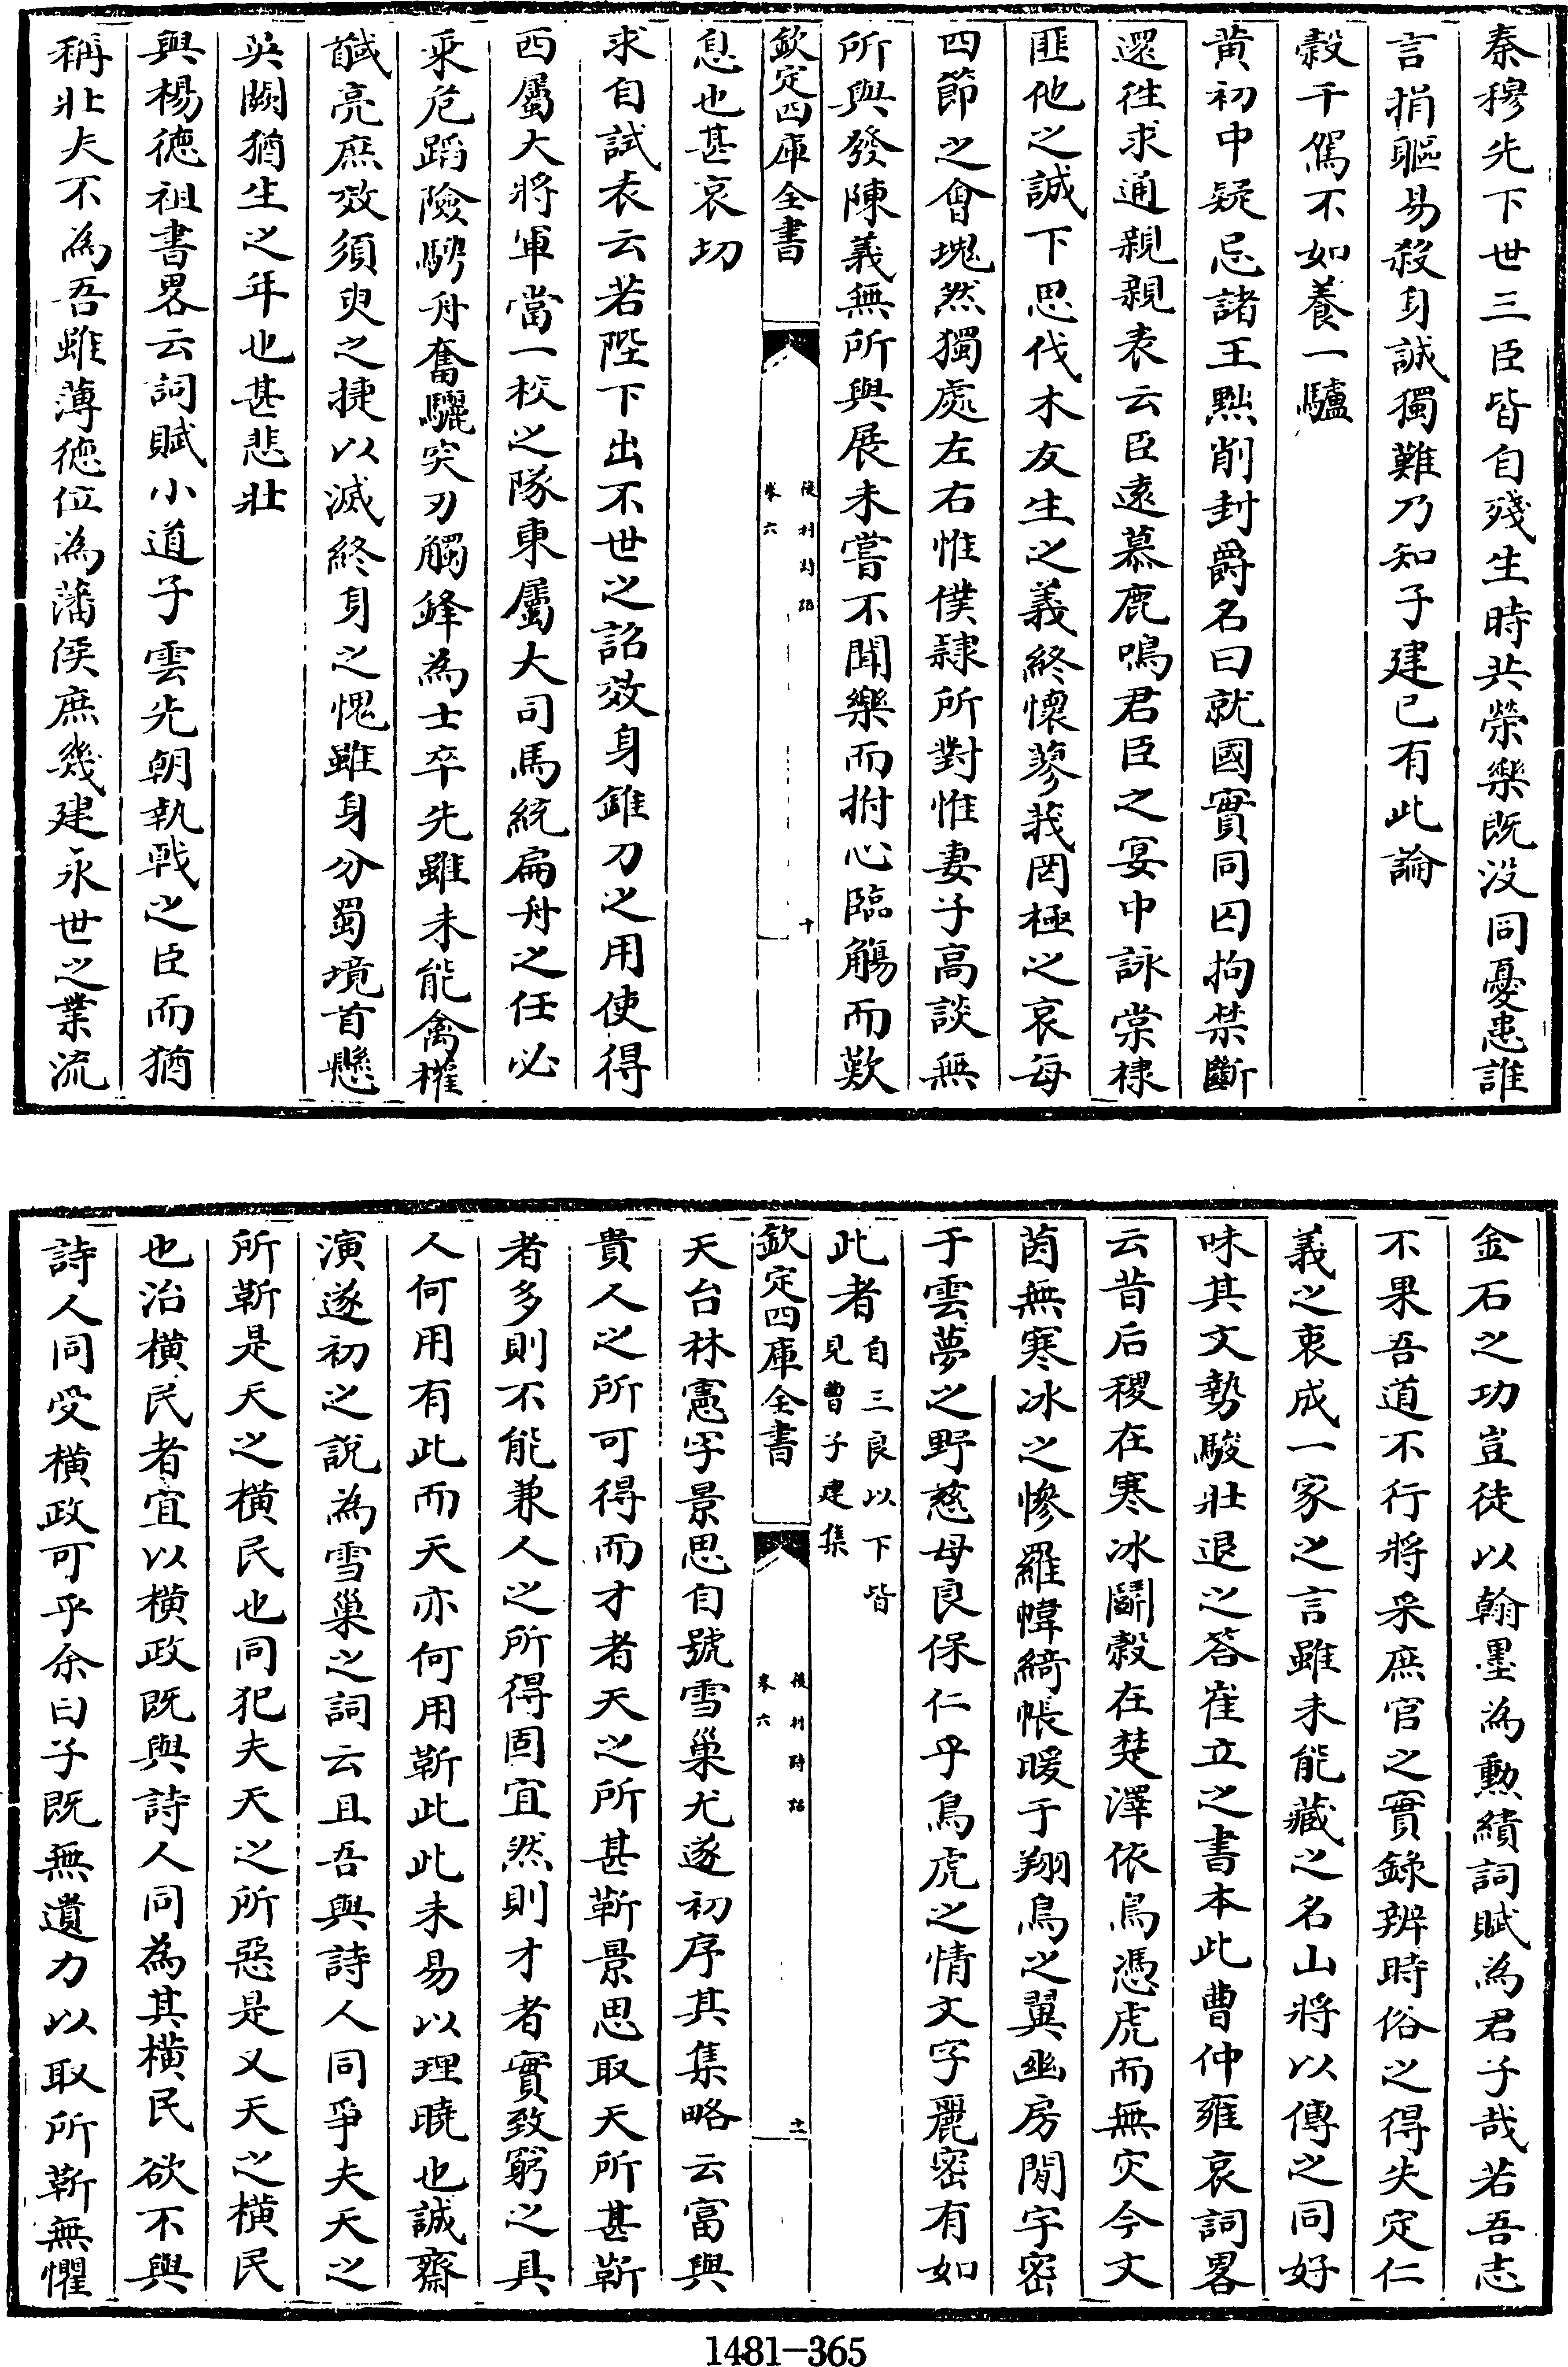 秦穆先下世三臣皆自殘生時共榮樂既沒同憂患誰
言捐軀易殺身誠獨難乃知子建已有此論
榖千駑不如養一驢
黄初中疑忌諸王黜削封爵名曰就國實同囚拘禁斷
還徃求通親親表云臣遠慕鹿鳴君臣之宴中詠棠棣
匪他之誠下思伐木友生之義終懷蓼莪罔極之哀每
四節之會塊然獨處左右惟僕隷所對惟妻子高談無
所與發陳義無所與展未嘗不聞樂而拊心臨觴而歎
欽定四庫全書
後村詩話
卷六
十
息也甚哀切
求自試表云若陛下出不世之詔效身錐刀之用使得
西屬大將軍當一校之隊東屬大司馬統扁舟之任必
乘危蹈險騁舟奮驪突刃觸鋒為士卒先雖未能禽權
馘亮庶效須臾之捷以滅終身之愧雖身分蜀境首懸
吳闕猶生之年也甚悲壯
與楊徳祖書畧云詞賦小道子雲先朝執戟之臣而猶
稱壯夫不為吾雖薄徳位為藩侯庶幾建永世之業流
金石之功豈徒以翰墨為勲績詞賦為君子哉若吾志
不果吾道不行將采庶官之實錄辨時俗之得失定仁
義之衷成一家之言雖未能藏之名山將以傳之同好
味其文勢駿壯退之答崔立之書本此曹仲雍哀詞畧
云昔后稷在寒冰鬭榖在楚澤依鳥憑虎而無灾今文
茵無寒冰之慘羅幃綺帳暖于翔鳥之翼幽房閒宇密
于雲夢之野慈母良保仁乎鳥虎之情文字麗密有如
此者自三良以下皆見曹子建集
欽定四庫全書
後村詩話
卷六
十一
天台林憲字景思自號雪巢尤遂初序其集略云富與
貴人之所可得而才者天之所甚靳景思取天所甚靳
者多則不能兼人之所得固宜然則才者實致窮之具
人何用有此而天亦何用靳此此未易以理曉也誠齋
演遂初之說為雪巢之詞云且吾與詩人同爭夫天之
所靳是天之橫民也同犯夫天之所惡是又天之橫民
也治橫民者宜以橫政既與詩人同為其橫民欲不與
詩人同受橫政可乎余曰子既無遺力以取所靳無懼
1481-365